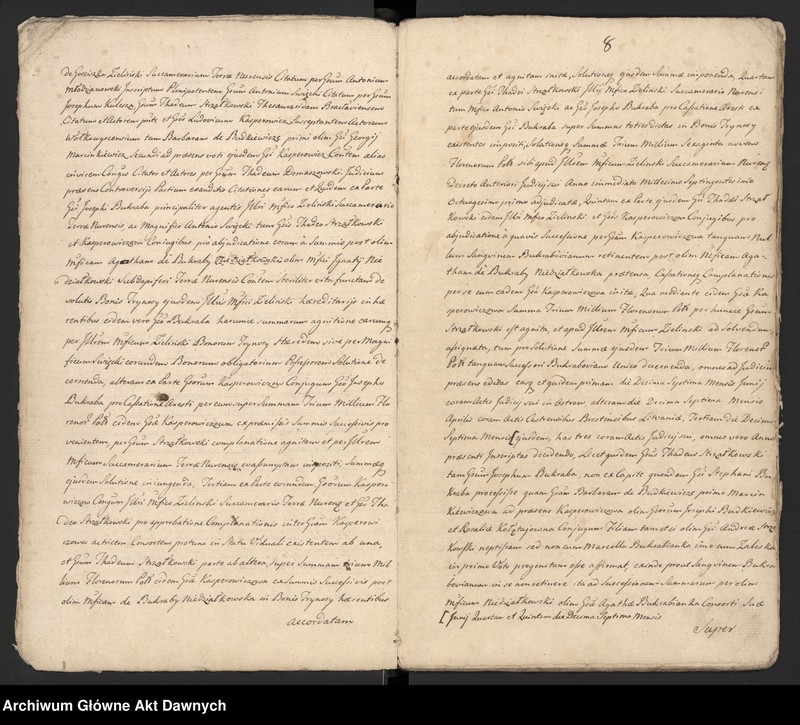 de Gościszka Zieliński Succamerarium Terræ Nurensis Citatum per Gsum Antonium
Młodzianowski Inscriptum Plenipotentem Gsum Antonium Swięzki Citatum per Gsum
Josephum Kulesza, Gsum Thadeum Strzałkowski Thesaurarium Braclaviensem
Citatum et Actorem Gsum Ludovicum Kasperowicz Susceptantem Actoreum
Wołkowyscensium tum Barbaram de Budkiewicze primi olim Gsi Georgij
Marcinkiewicz Secundi ad præsens voti ejusdem Gsi Kasperowicz Consortem alias
invicem Conjuges Citatos et Actores per Gsum Thadeum Domaszowski. Judicium
præsens Controversijs Partium exauditis Citationes earum et Quidem ex Parte
Gsi Josephi Bukraba principaliter agentis Illri Mfico Zieliński Succamerario
Terræ Nurensis, ac Magnifico Antonio Swięzki tum Gsis Thadeo Strzałkowski
et Kasperowiczom Conjugibus pro abjudicatione eorum à Summis post olim
Mficam Agatham de Bukraby olim Mfici Ignatij Nie
działkowski Subdapiferi Terræ Nurensis Consortem Steriliter vita functam de
volutis Bonis Trynosy ejusdem Illris Mfici Zieliński hæreditarijs inhæ
rentibus eidem vero Gso Bukraba harumce summarum agnitione earumq
per Illrem Mficum Zieliński Bonorum Trynosy Hæredem sive per Magni
ficum Swięzki eorundem Bonorum obligatorium Possessorem Solutione de
cernenda, alteram ex Parte Gsorum Kasperowiczow Conjugum Gso Josepho
Bukraba pro Cassatione Aresti per eum super Summam Trium Millium Flo
renor Polł eidem Gsæ Kasperowiczowa ex præmissis Summis Successivis pro
venientem, per Gsum Strzałkowski complanatione agnitam et per Illrem
Mficum Succamerarium Terræ Nurensis evasuratam impositi Summæq
ejusdem Solutione injungenda, Tertiam ex Parte eorundem Gsorum Kasper
wiczow Conjugum Illri Mfico Zieliński Succamerario Terræ Nurens et Gso Tha
deo Strzałkowski pro approbatione Complanationis inter Gsam Kasperowi
czowa actricem Consortem protunc in Statu Viduali existentem ab una,
et Gsum Thadeum Strzałkowski parte ab altera, super Summam Trium Mil
lium Florenorum Polł eidem Gsæ Kasperowiczowa ex Summis Successivis post
olim Mficam de Bukraby Niedziałkowska in Bonis Trynosy hærentibus
accordatam
8
accordatam et agnitam initæ, Solutioneq ejusdem Summæ imponenda, Quartam
ex parte Gsi Thadei Strzałkowski Illri Mfico Zieliński Succamerario Nurensi
tum Mfico Antonio Swięzki ac Gso Josepho Bukraba pro Cassatione Aresti ex
parte ejusdem Gsi Bukraba super Summas totiesdictas in Bonis Trynosy
existentes impositi, Solutioneq Summæ Trium Millium Sexaginta novem
Florenorum Polł sibi apud Illrem Mficum Zieliński Succamerarium Nurens
Decreto Anteriori Judicij sui Anno immediato Millesimo Septingentesimo
Octuagesimo primo adjudicatæ, Quintam ex Parte ejusdem Gsi Thadei Strzał
kowski eidem Illri Mfico Zieliński, et Gsis Kasperowiczom Conjugibus pro
abjudicatione à quavis Successione per Gsam Kasperowiczowa tanquam Nul
lum Sangvinem Bukrabovianum retinentem post olim Mficam Aga-
tham de Bukraby Niedziałkowska prætensa, Cassationeq Complanationis
per se cum eadem Gsa Kasperowiczowa initæ, Qua mediante eidem Gsæ Ka
sperowiczowa Summa Trium Millium Florenorum Polł per huncce Gsum
Strzałkowski est agnita, et apud Illrem Mficum Zieliński ad Solvendum
assignata, tum pro Solutione Summæ ejusdem Trium Millium Florenor
Polł tanquam Successori Bukraboviano Unico decernenda, omnes ad Judicium
præsens editas easq et quidem primam die Decima Septima Mensis Junij
coram Actis Judicij sui in Ostrow, alteram die Decima Septima Mensis
Aprilis coram Actis Castrensibus Brestensibus Litvaniæ, Tertiam die Decima
Septima Mensis [ejusdem, has tres coram Actis Judicij sui, omnes vero Anno
præsenti Inscriptas decidendo, Licet quidem Gsus Thadeus Strzałkowski
tam Gsum Josephum Bukraba, non ex Capite quondam Gsi Stephani Bu
kraba processisse quam Gsam Barbaram de Budkiewicze primo Marcin
kiewiczowa ad præsens Kasperowiczowa olim Gsorum Josephi Budkiewicz
et Rosaliæ Kołłątajowna Conjugum Filiam tam et olim Gsi Andreæ Strza
kowski neptisfiam sed non cum Marcella Bukrabianka imo cum Zaleska
in primo Voto progenitam esse affirmat, exinde prout Sangvinem Bukra
bovianum in se non retinere ita ad Successionem Summarum per olim
Mficum Niedziałkowski olim Gsæ Agathæ Bukrabianka Consorti Suæ
[Junij Quartam et Quintam die Decima Septima Mensis
Super
Archiwum Główne Akt Dawnych